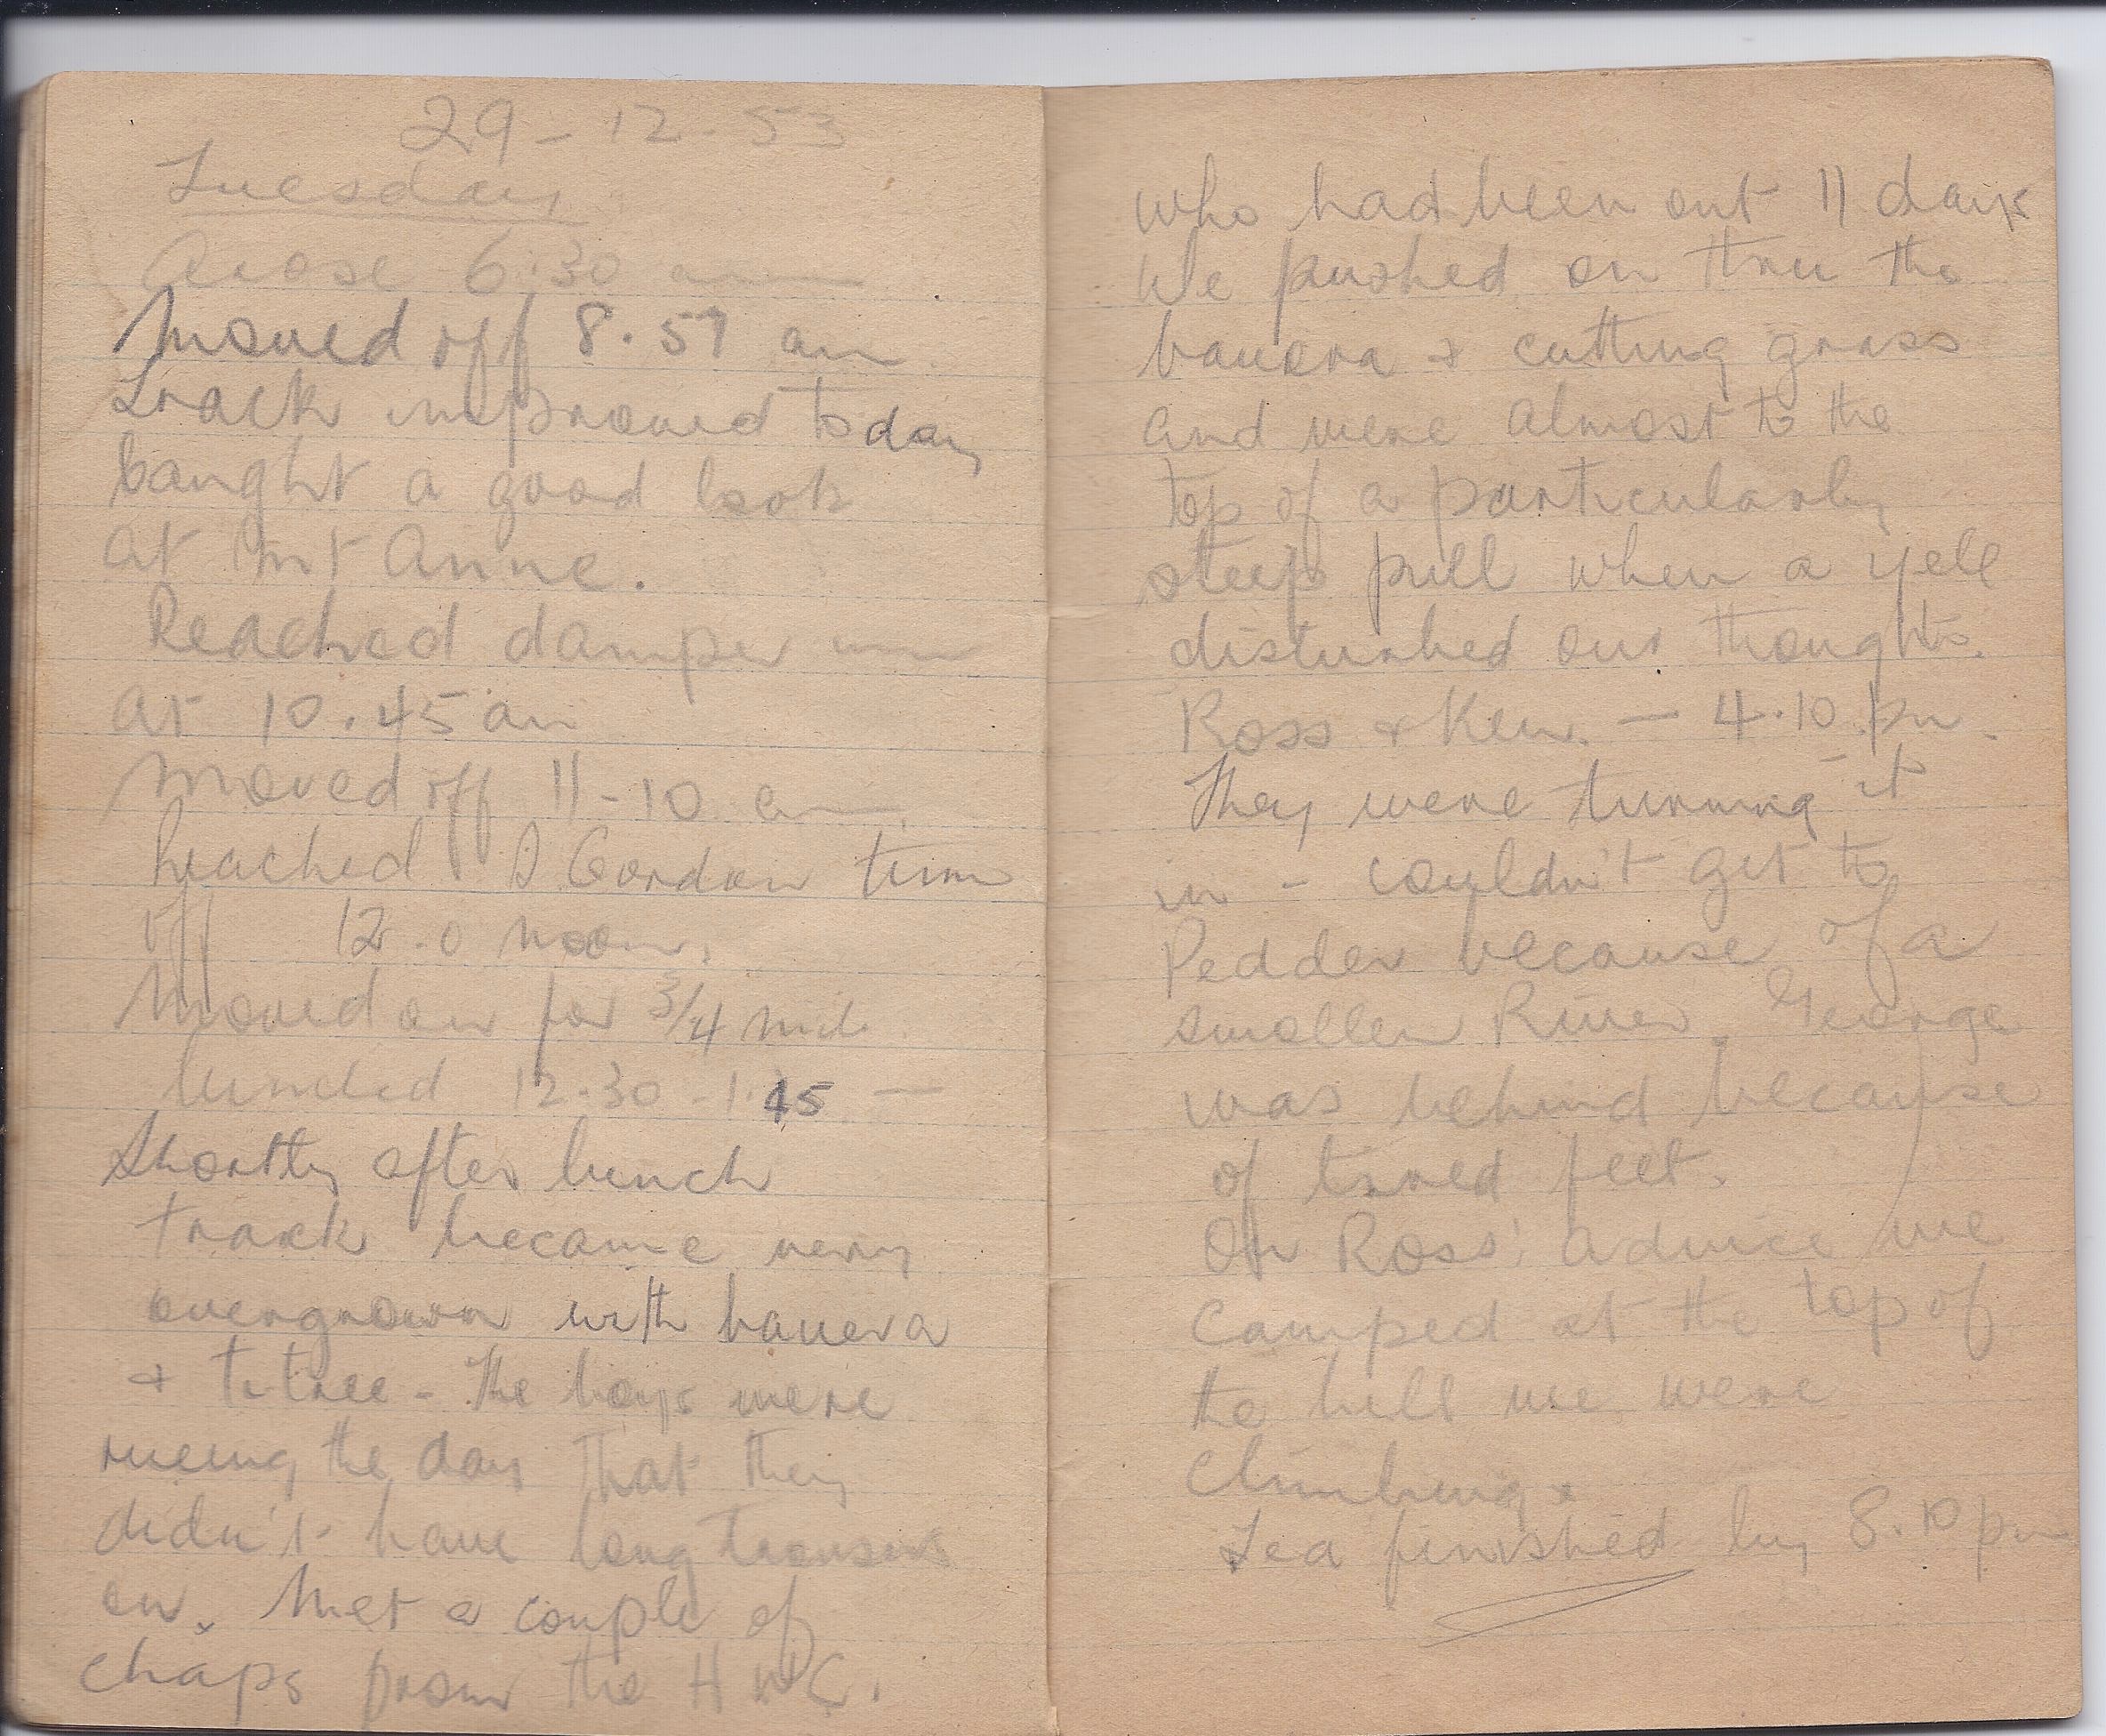 29-12-53
Tuesday
Arose 6.30 am
Moved off 8.57 am
Track improved today
Caught a good look
at Mt Anne.
Reached damper inn
at 10.45 am
Moved off 11-10 am
Reached Gordon turn
off 12.0 noon.
Moved on for 3/4 mile
lunched 12.30 - 1.15
Shortly after lunch
track became very
overgrown with bauera
+ ti tree - The boys were
rueing the day that they
didn't have long trousers
on. Met a couple of
chaps from the HWC.
who had been out 11 days
We pushed on thru the
bauera + cutting grass
and were almost to the
top of a particularly
steep pull when a yell
disturbed our thoughts.
Ross + Ken. - 4.10 pm.
They were turning it
in - couldn't get to
Pedder because of a
smaller River. George
was behind because
of tired feet.
On Ross' advice we
camped at the top of
the hill we were
climbing.
Tea finished by 8.10 pm